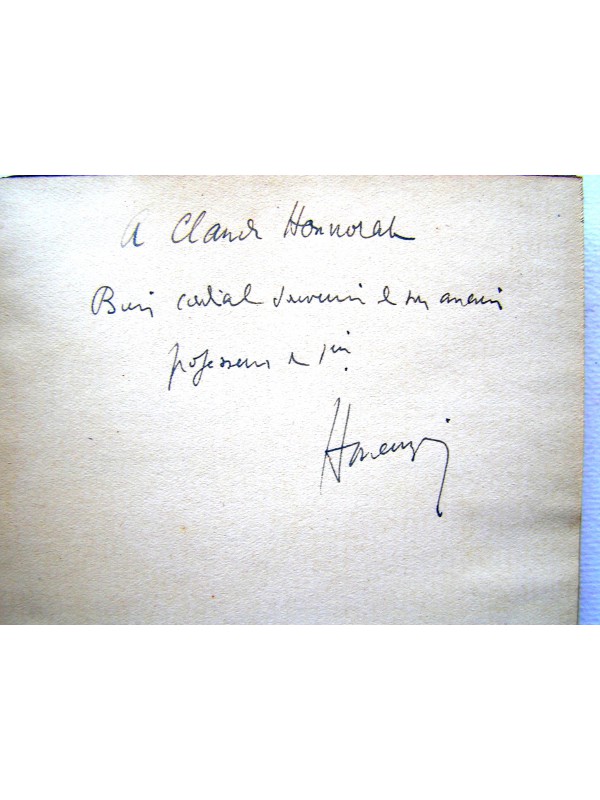 A Claude Honnorat
Bien cordial souvenir de son ancien
professeur de